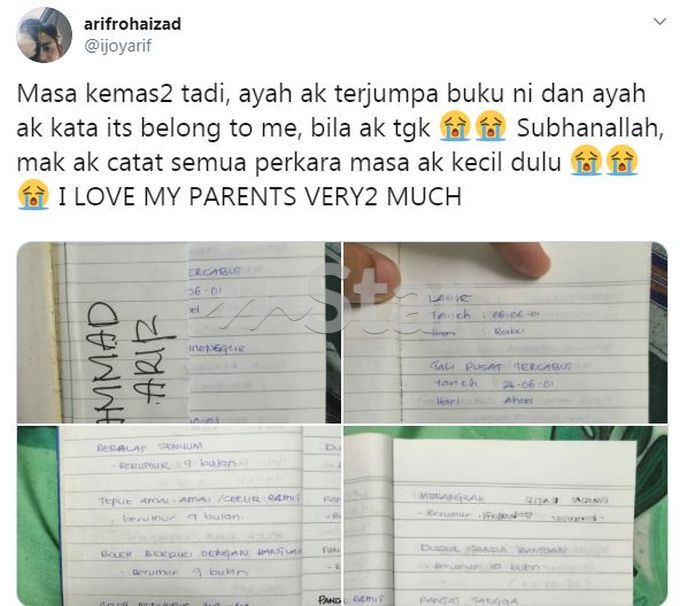 arifrohaizad
@ijoyarif
Masa kemas2 tadi, ayah ak terjumpa buku ni dan ayah
ak kata its belong to me, bila ak tgk 😭😭 Subhanallah,
mak ak catat semua perkara masa ak kecil dulu 😭😭
😭 I LOVE MY PARENTS VERY2 MUCH
AMMAD
ARIF
ERCABUT
06-01
MENEGUR
mStar
LAHIR
Tarikh : 06-06-01
Hari : Rabu
TALI PUSAT TERCABUT
Tarikh : 24-06-01
Hari : Ahad
BERALAS SENYUM
- BERUMUR 9 bulan
TEPUK AMAI-AMAI /
- berumur 9 bulan.
BOLEH BERDIRI DENGAN BANTUAN
- Berumur 9 bulan
MERANGKAK
- Berumur
DUDUK TANPA BANTUAN
- Berumur 10 bulan
PANJAT TANGGA